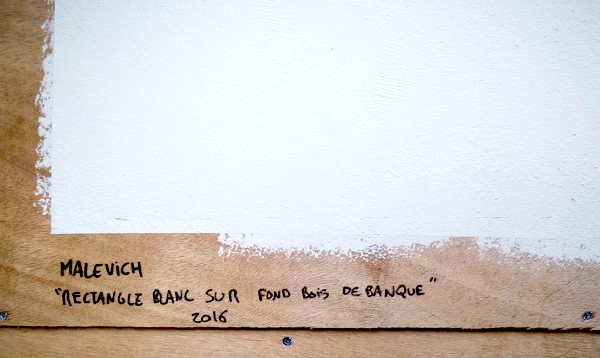 MALEVICH
"RECTANGLE BLANC SUR FOND BOIS DE BANQUE"
2016